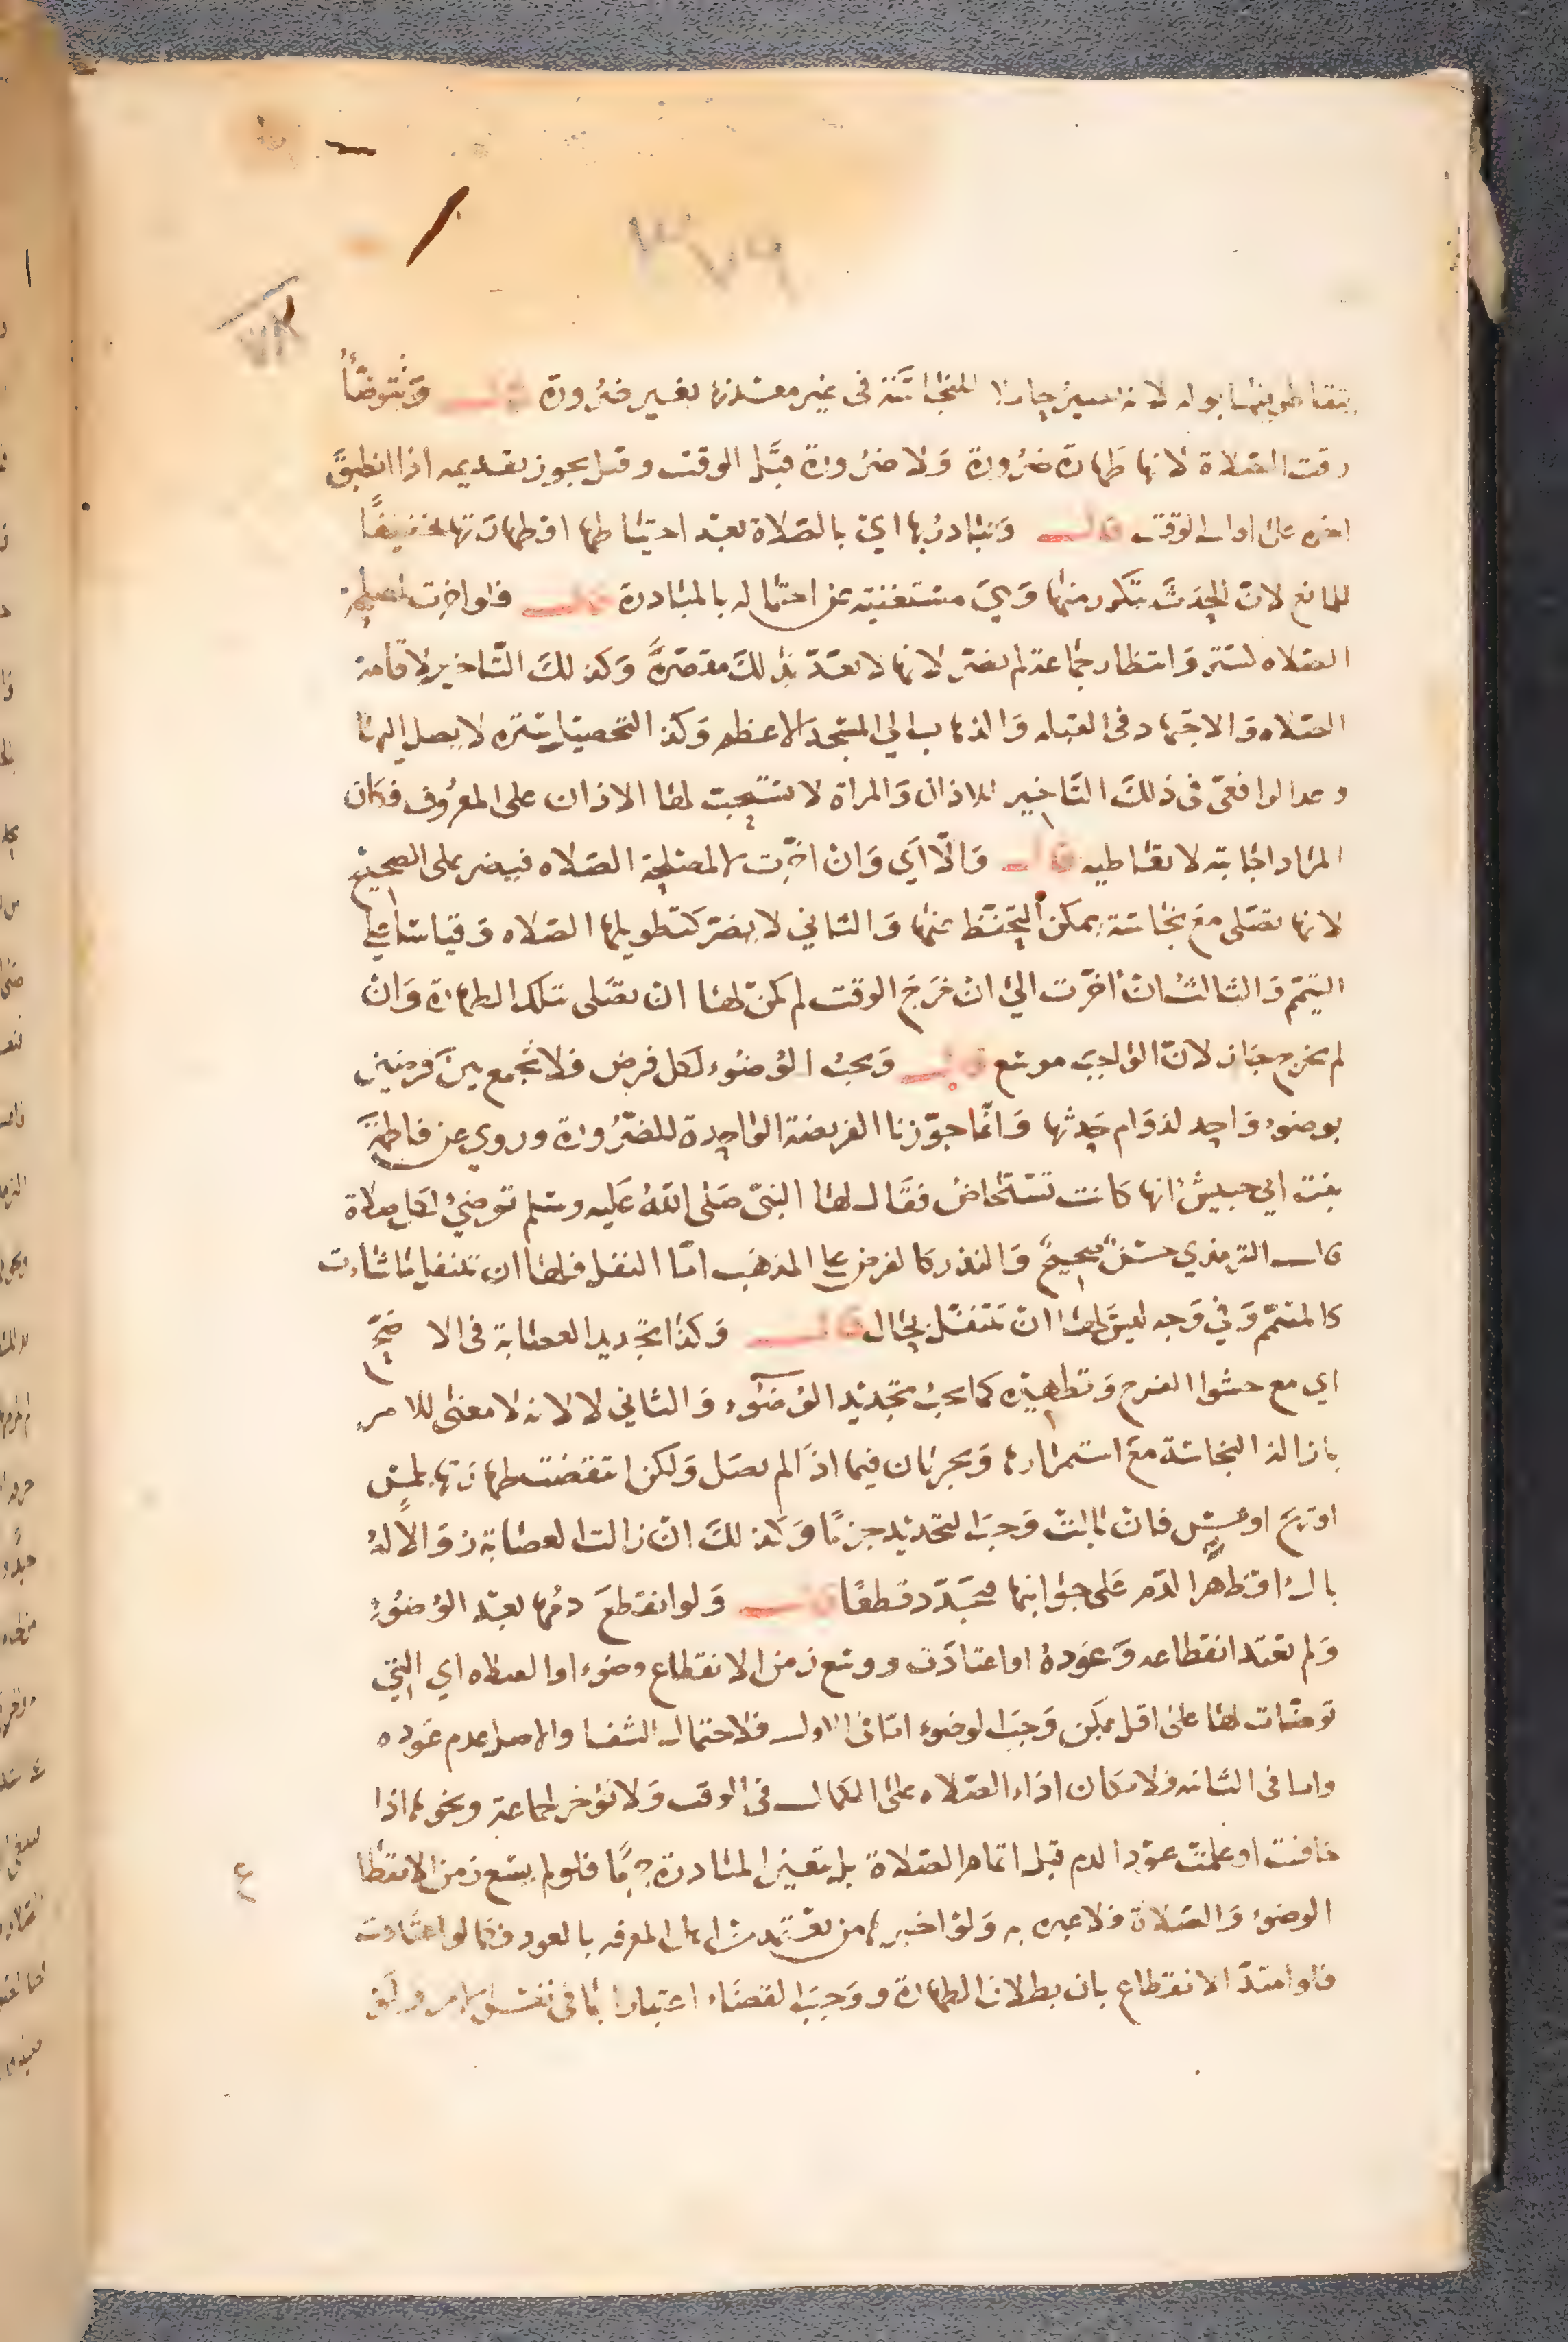 ٣٧٩
يتقاطر فيها بوله لانه يصير حاملا للنجاسة فى غير معدنها بغير ضرورة قال وتتوضأ
وقت الصلاة لانها طهارة ضرورة ولا ضرورة قبل الوقت وقيل يجوز تقديمه اذا انطبق
اخره على اول الوقت قال وتبادر بها اي بالصلاة بعد احتياطها او طهارتها تخفيفا
للمانع لان الحدث يتكرر منها وهي مستغنية عن احتماله بالمبادرة قال فلو اخرت لمصلحة
الصلاه كستر وانتظار جماعة لم يضر لانها لا تعد بذلك مقصرة وكذلك التاخير لاقامة
الصلاه والاجتهاد فى القبله والذهاب الى المسجد الاعظم وكذا لتحصيل سترة لا يصل اليها
وعد الرافعي فى ذلك التاخير للاذان والمراة لا يستحب لها الاذان على المعروف فكان
المراد اجابته لا تعاطيه قال والا اي وان اخرت لا لمصلحة الصلاه فيضر على الصحيح
لانها تصلى مع نجاسة يمكن التحفظ عنها والثاني لا يضر كتطويلها الصلاه وقياسا على
التيمم والثالث ان اخرت الى ان خرج الوقت لم يكن لها ان تصلى بتلك الطهارة وان
لم يخرج جاز لان الواجب موسع قال ويجب الوضوء لكل فرض فلا تجمع بين فرضين
بوضوء واحد لدوام حدثها وانما جوزنا الفريضة الواحدة للضرورة وروي عن فاطمة
بنت ابي حبيش انها كانت تستحاض فقال لها النبي صلى الله عليه وسلم توضئي لكل صلاة
قال الترمذي حسن صحيح والنذر كالفرض على المذهب اما النفل فلها ان تتنفل ما شاءت
كالمتيمم وفي وجه ليس لها ان تتنفل بحال قال وكذا تجديد العصابة فى الاصح
اي مع حشو الفرج وتطهيره كما يجب تجديد الوضوء والثاني لا لانه لا معنى للامر
بازالة النجاسة مع استمرارها ويجريان فيما اذا لم تصل ولكن انتقضت طهارتها بلمس
او ريح او مس فان بالت وجب التجديد جزما وكذلك ان زالت العصابة زوالا له
بال او ظهر الدم على جوانبها فتجدد قطعا قال ولو انقطع دمها بعد الوضوء
ولم تعتد انقطاعه وعوده او اعتادت ووسع زمن الانقطاع وضوءا والصلاه اي التي
توضات لها على اقل ممكن وجب الوضوء اما فى الاول فلاحتمال الشفا والاصل عدم عوده
واما فى الثانيه فلامكان اداء الصلاه على الكمال فى الوقت ولا تؤخر لجماعة ونحوها اذا
خافت او علمت عود الدم قبل اتمام الصلاة بل تتعين المبادرة جزما فلو لم يسع زمن الانقطاع
الوضوء والصلاة فلا عبره به ولو اخبرها من تعتمد من اهل المعرفه بالعود فكما لو اعتادت
فلو امتد الانقطاع بان بطلان الطهارة ووجب القضاء اعتبارا بما فى نفس الامر ولو